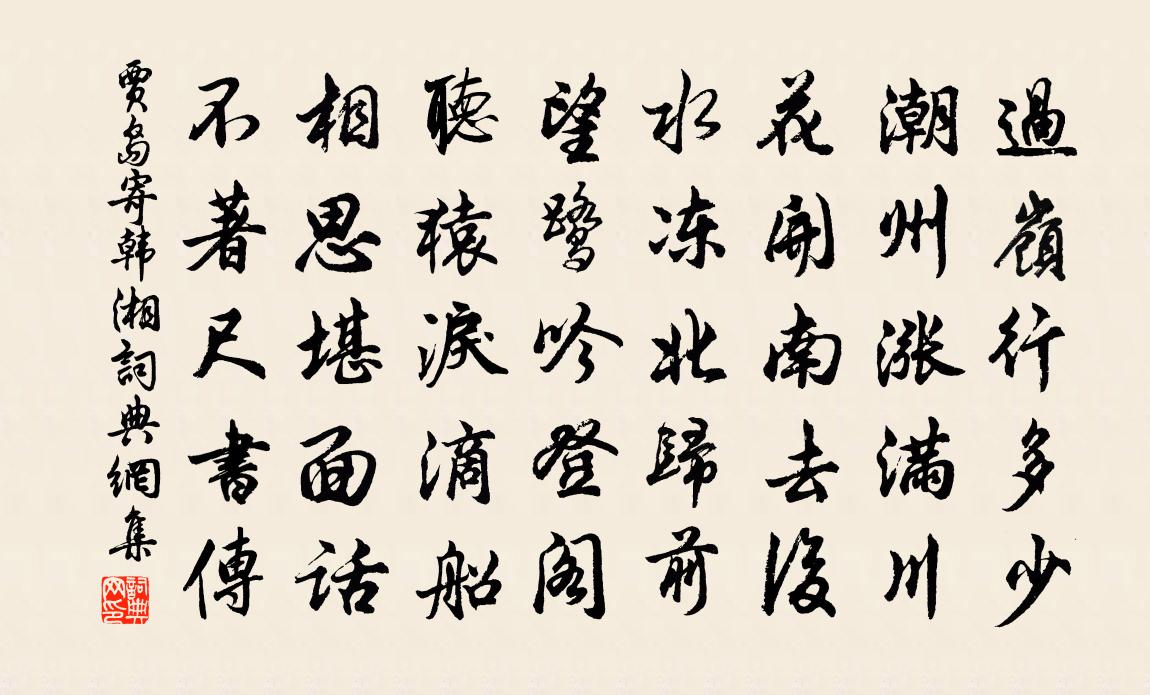 過嶺行多少
潮州漲滿川
花開南去後
水凍北歸前
望鷺吟登閣
聽猿淚滴船
相思堪面話
不著尺書傳
賈島寄韩湘詞典網集
詞典网印